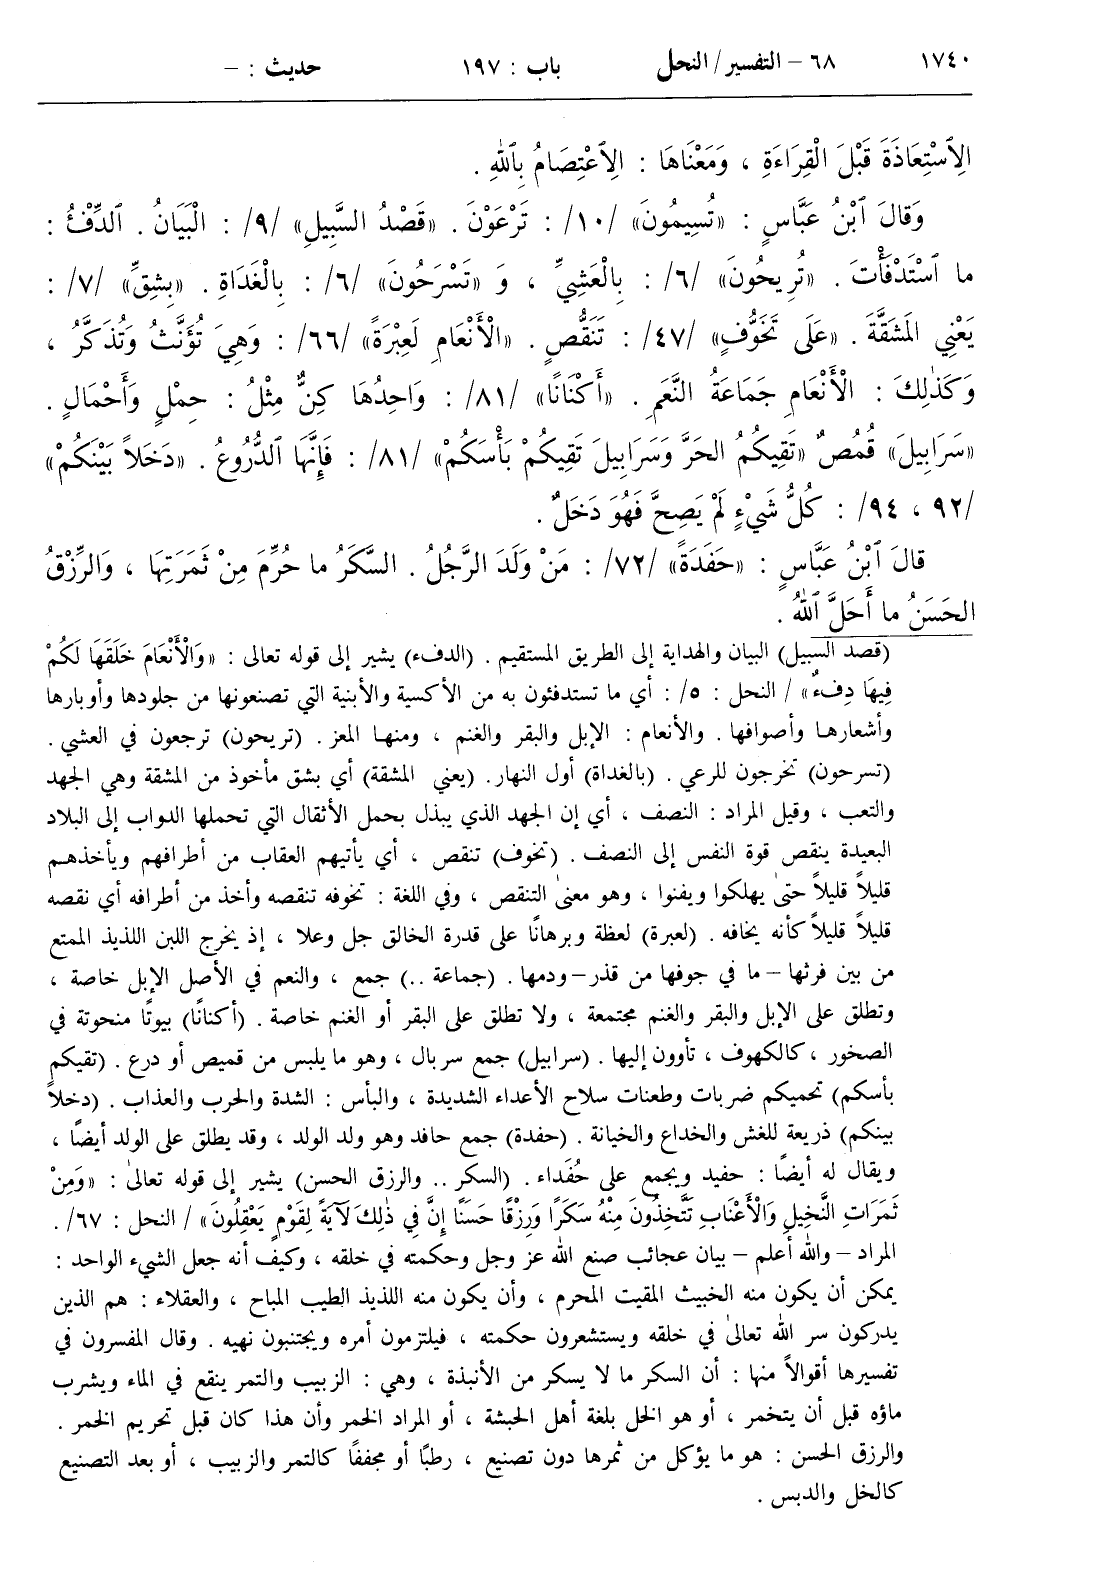 ١٧٤٠ ٦٨ – التفسير/النحل باب : ١٩٧ حديث : –
الِٱسْتِعَاذَةَ قَبْلَ الْقِرَاءَةِ ، وَمَعْنَاهَا : الِٱعْتِصَامُ بِٱللهِ .
وَقالَ ٱبْنُ عَبَّاسٍ : «تُسِيمُونَ» /١٠/ : تَرْعَوْنَ . «قَصْدُ السَّبِيلِ» /٩/ : الْبَيَانُ . ٱلدِّفْءُ :
ما ٱسْتَدْفَأْتَ . «تُرِيحُونَ» /٦/ : بِالْعَشِيِّ ، وَ «تَسْرَحُونَ» /٦/ : بِالْغَدَاةِ . «بِشِقِّ» /٧/ :
يَعْنِي المَشَقَّةَ . «عَلَى تَخَوُّفٍ» /٤٧/ : تَنَقُّصٍ . «الْأَنْعَامِ لَعِبْرَةً» /٦٦/ : وَهِيَ تُؤَنَّثُ وَتُذَكَّرُ ،
وَكَذٰلِكَ : الْأَنْعَامِ جَمَاعَةُ النَّعَمِ . «أَكْنَانًا» /٨١/ : وَاحِدُهَا كِنٌّ مِثْلُ : حِمْلٍ وَأَحْمَالٍ .
«سَرَابِيلَ» قُمُصٌ «تَقِيكُمُ الحَرَّ وَسَرَابِيلَ تَقِيكُمْ بَأْسَكُمْ» /٨١/ : فَإِنَّهَا ٱلدُّرُوعُ . «دَخَلاً بَيْنَكُمْ»
/٩٢ ، ٩٤/ : كُلُّ شَيْءٍ لَمْ يَصِحَّ فَهُوَ دَخَلٌ .
قالَ ٱبْنُ عَبَّاسٍ : «حَفَدَةً» /٧٢/ : مَنْ وَلَدَ الرَّجُلُ . السَّكَرُ ما حُرِّمَ مِنْ ثَمَرَتِهَا ، وَالرِّزْقُ
الحَسَنُ ما أَحَلَّ ٱللهُ .
(قصد السبيل) البيان والهداية إلى الطريق المستقيم . (الدفء) يشير إلى قوله تعالى : «وَالْأَنْعَامَ خَلَقَهَا لَكُمْ
فِيهَا دِفْءٌ» / النحل : ٥/ : أي ما تستدفئون به من الأكسية والأبنية التي تصنعونها من جلودها وأوبارها
وأشعارها وأصوافها . والأنعام : الإبل والبقر والغنم ، ومنها المعز . (تريحون) ترجعون في العشي .
(تسرحون) تخرجون للرعي . (بالغداة) أول النهار . (يعني المشقة) أي بشق مأخوذ من المشقة وهي الجهد
والتعب ، وقيل المراد : النصف ، أي إن الجهد الذي يبذل بحمل الأثقال التي تحملها الدواب إلى البلاد
البعيدة ينقص قوة النفس إلى النصف . (تخوف) تنقص ، أي يأتيهم العقاب من أطرافهم ويأخذهم
قليلاً قليلاً حتىٰ يهلكوا ويفنوا ، وهو معنىٰ التنقص ، وفي اللغة : تخوفه تنقصه وأخذ من أطرافه أي نقصه
قليلاً قليلاً كأنه يخافه . (لعبرة) لعظة وبرهانًا على قدرة الخالق جل وعلا ، إذ يخرج اللبن اللذيذ الممتع
من بين فرثها – ما في جوفها من قذر – ودمها . (جماعة ..) جمع ، والنعم في الأصل الإبل خاصة ،
وتطلق على الإبل والبقر والغنم مجتمعة ، ولا تطلق على البقر أو الغنم خاصة . (أكنانًا) بيوتًا منحوتة في
الصخور ، كالكهوف ، تأوون إليها . (سرابيل) جمع سربال ، وهو ما يلبس من قميص أو درع . (تقيكم
بأسكم) تحميكم ضربات وطعنات سلاح الأعداء الشديدة ، والبأس : الشدة والحرب والعذاب . (دخلاً
بينكم) ذريعة للغش والخداع والخيانة . (حفدة) جمع حافد وهو ولد الولد ، وقد يطلق على الولد أيضًا ،
ويقال له أيضًا : حفيد ويجمع على حُفَداء . (السكر .. والرزق الحسن) يشير إلى قوله تعالىٰ : «وَمِنْ
ثَمَرَاتِ النَّخِيلِ وَالْأَعْنَابِ تَتَّخِذُونَ مِنْهُ سَكَرًا وَرِزْقًا حَسَنًا إِنَّ فِي ذٰلِكَ لَآيَةً لِقَوْمٍ يَعْقِلُونَ» / النحل : ٦٧/ .
المراد – والله أعلم – بيان عجائب صنع الله عز وجل وحكمته في خلقه ، وكيف أنه جعل الشيء الواحد :
يمكن أن يكون منه الخبيث المقيت المحرم ، وأن يكون منه اللذيذ الطيب المباح ، والعقلاء : هم الذين
يدركون سر الله تعالىٰ في خلقه ويستشعرون حكمته ، فيلتزمون أمره ويجتنبون نهيه . وقال المفسرون في
تفسيرها أقوالاً منها : أن السكر ما لا يسكر من الأنبذة ، وهي : الزبيب والتمر ينقع في الماء ويشرب
ماؤه قبل أن يتخمر ، أو هو الخل بلغة أهل الحبشة ، أو المراد الخمر وأن هذا كان قبل تحريم الخمر .
والرزق الحسن : هو ما يؤكل من ثمرها دون تصنيع ، رطبًا أو مجففًا كالتمر والزبيب ، أو بعد التصنيع
كالخل والدبس .